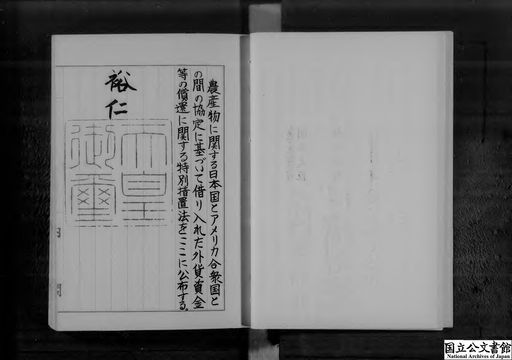 農産物に関する日本国とアメリカ合衆国と
の間の協定に基づいて借り入れた外貨資金
等の償還に関する特別措置法をここに公布する。
裕仁
天皇
御璽
国立公文書館
National Archives of Japan